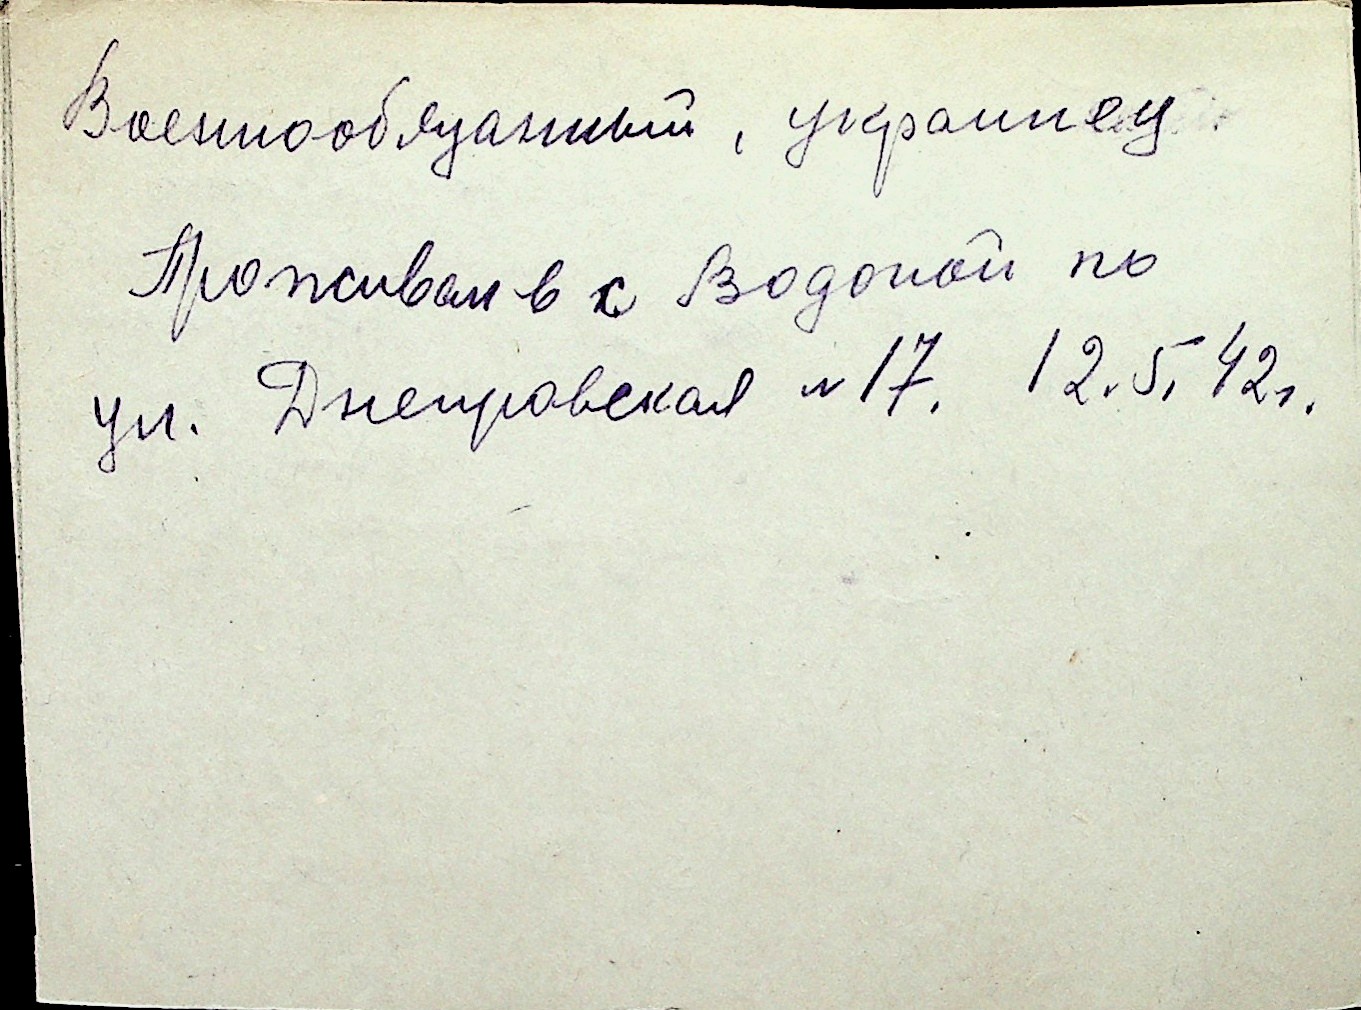 Военнообязанный, украинец.
Проживал в с Водопой по
ул. Днепровская № 17. 12.5.42г.